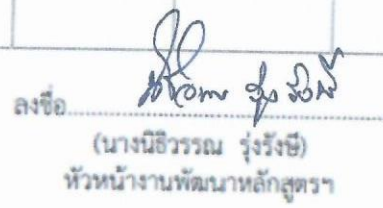 ลงชื่อ
(นางนิธิวรรณ รุ่งรังษี)
หัวหน้างานพัฒนาหลักสูตรฯ